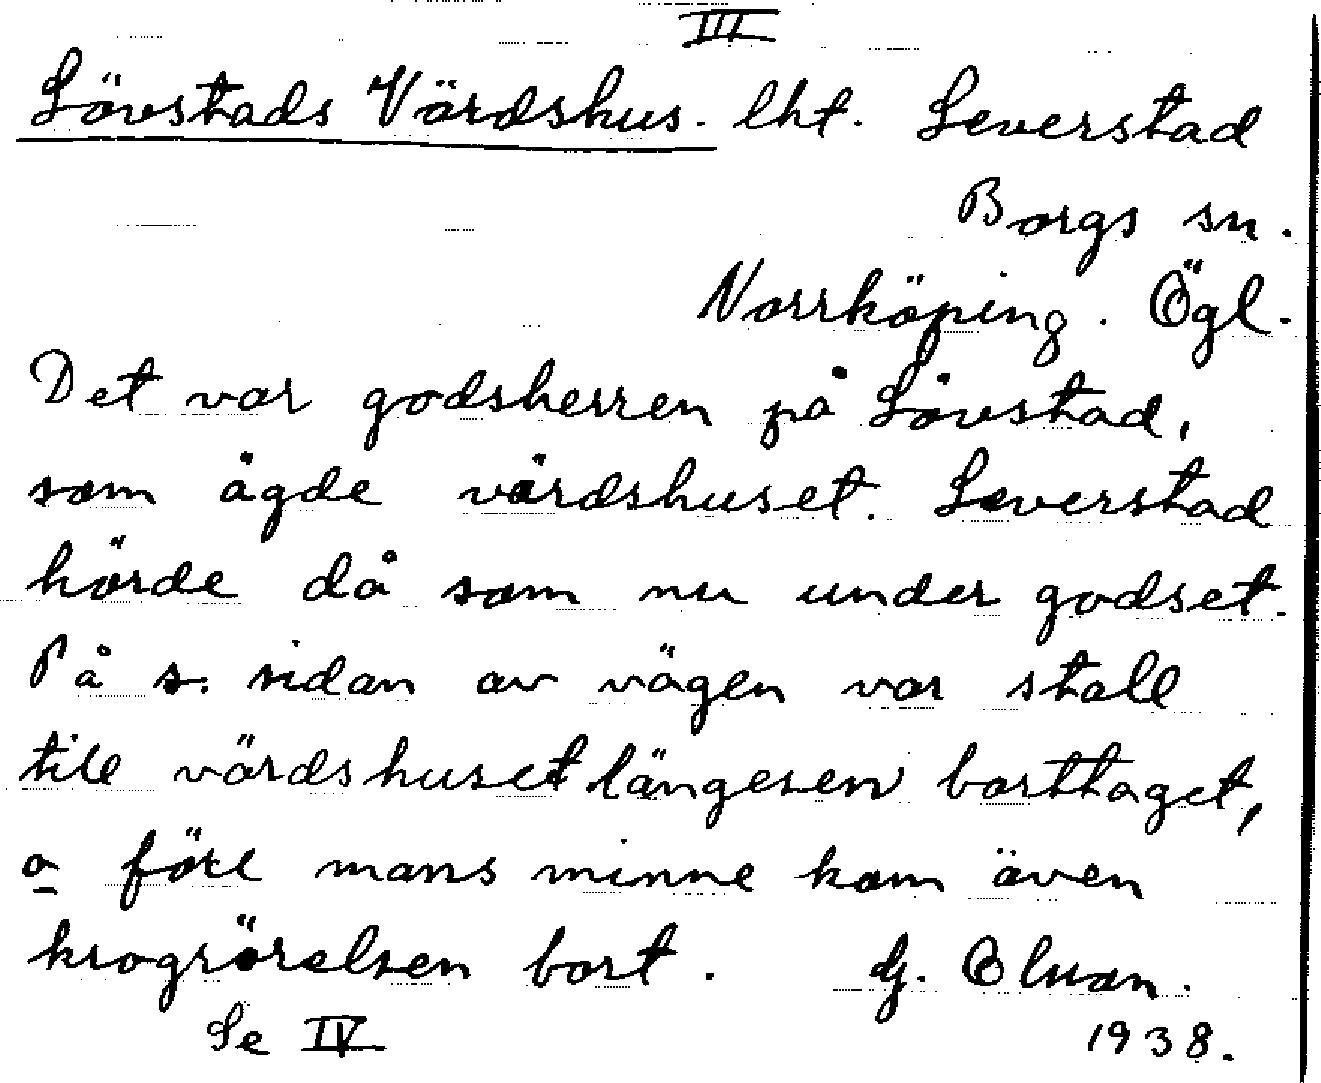 III
Lövstads Värdshus. lht. Leverstad
Borgs sn.
Norrköping. Ögl.
Det var godsherren på Lövstad,
som ägde värdshuset. Leverstad
hörde då som nu under godset.
På s. sidan av vägen var stall
till värdshuset längesen borttaget,
o före mans minne kom även
krogrörelsen bort.
Se IV 1938.